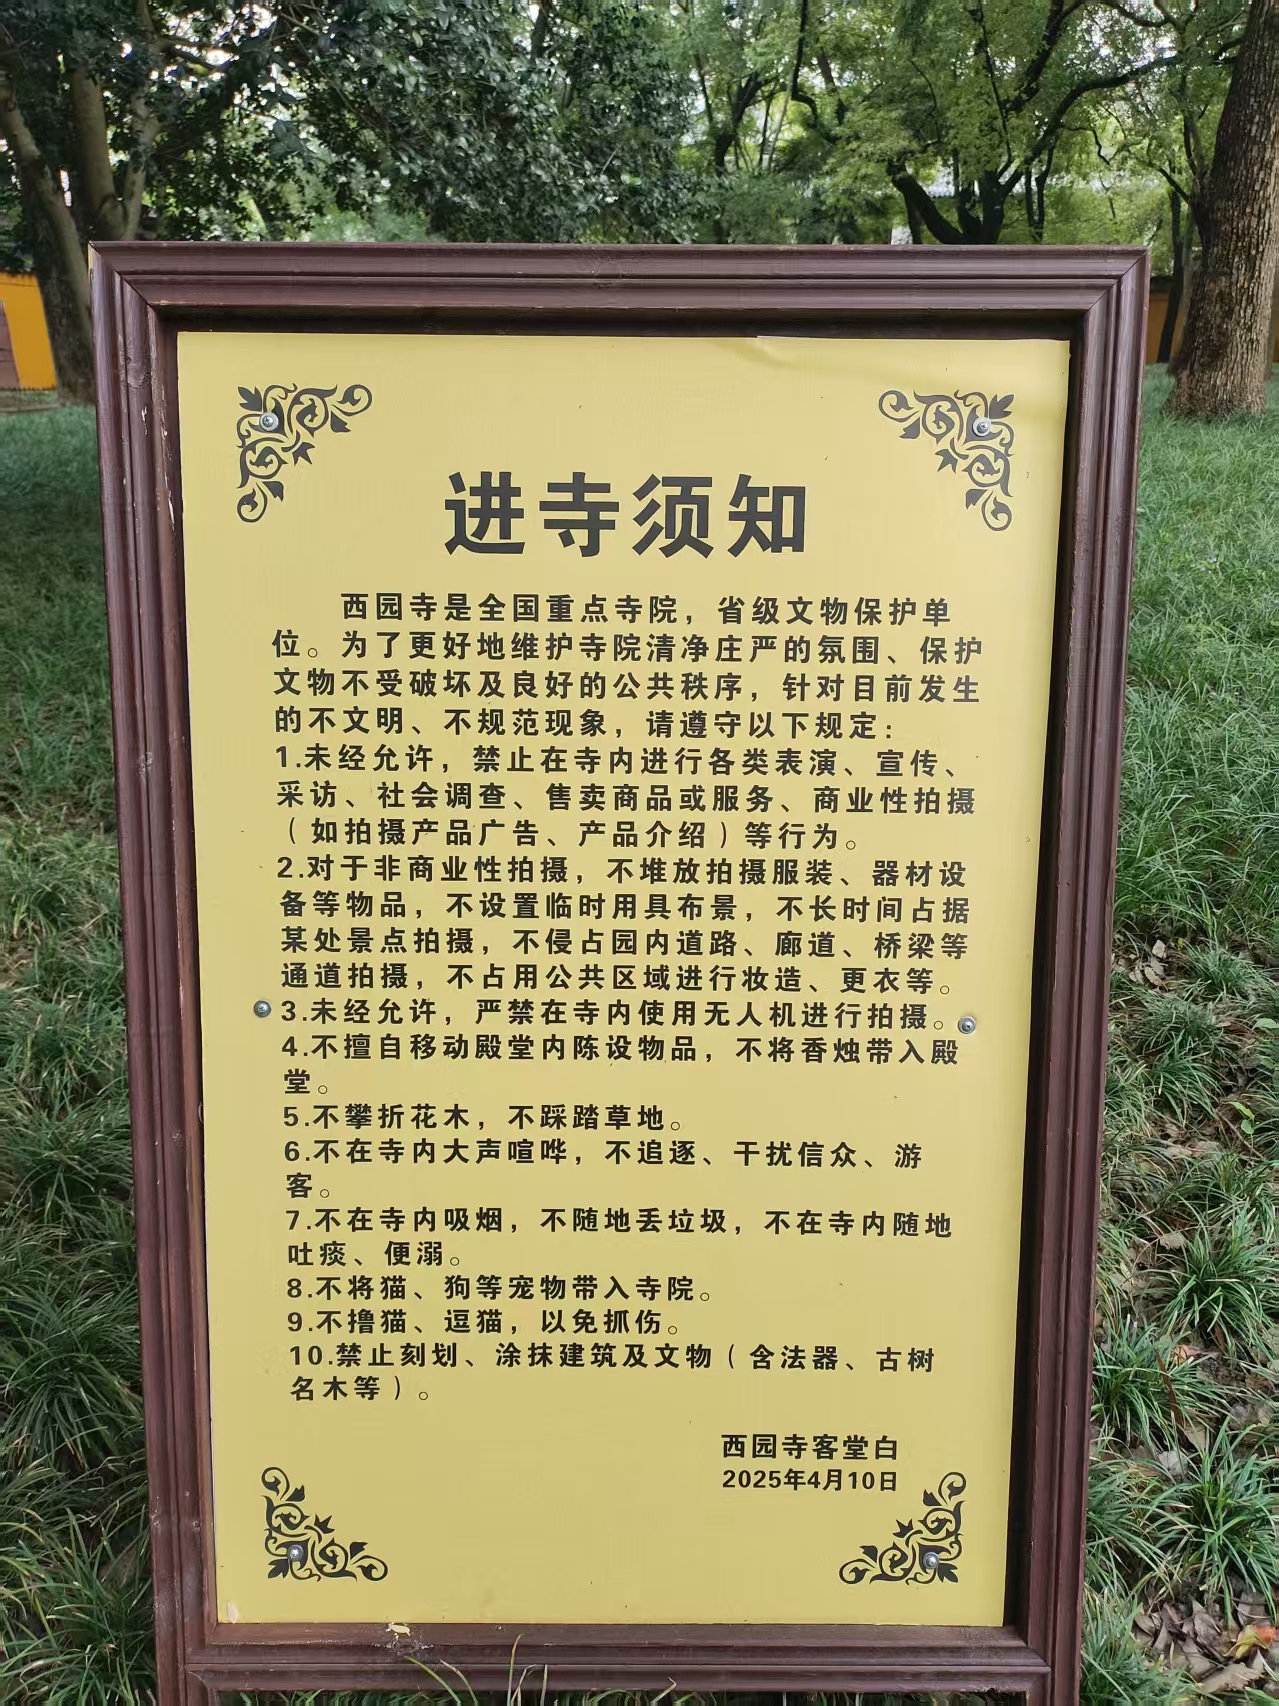 进寺须知
西园寺是全国重点寺院，省级文物保护单
位。为了更好地维护寺院清净庄严的氛围、保护
文物不受破坏及良好的公共秩序，针对目前发生
的不文明、不规范现象，请遵守以下规定：
1.未经允许，禁止在寺内进行各类表演、宣传、
采访、社会调查、售卖商品或服务、商业性拍摄
（如拍摄产品广告、产品介绍）等行为。
2.对于非商业性拍摄，不堆放拍摄服装、器材设
备等物品，不设置临时用具布景，不长时间占据
某处景点拍摄，不侵占园内道路、廊道、桥梁等
通道拍摄，不占用公共区域进行妆造、更衣等。
3.未经允许，严禁在寺内使用无人机进行拍摄。
4.不擅自移动殿堂内陈设物品，不将香烛带入殿
堂。
5.不攀折花木，不踩踏草地。
6.不在寺内大声喧哗，不追逐、干扰信众、游
客。
7.不在寺内吸烟，不随地丢垃圾，不在寺内随地
吐痰、便溺。
8.不将猫、狗等宠物带入寺院。
9.不撸猫、逗猫，以免抓伤。
10.禁止刻划、涂抹建筑及文物（含法器、古树
名木等）。
西园寺客堂白
2025年4月10日